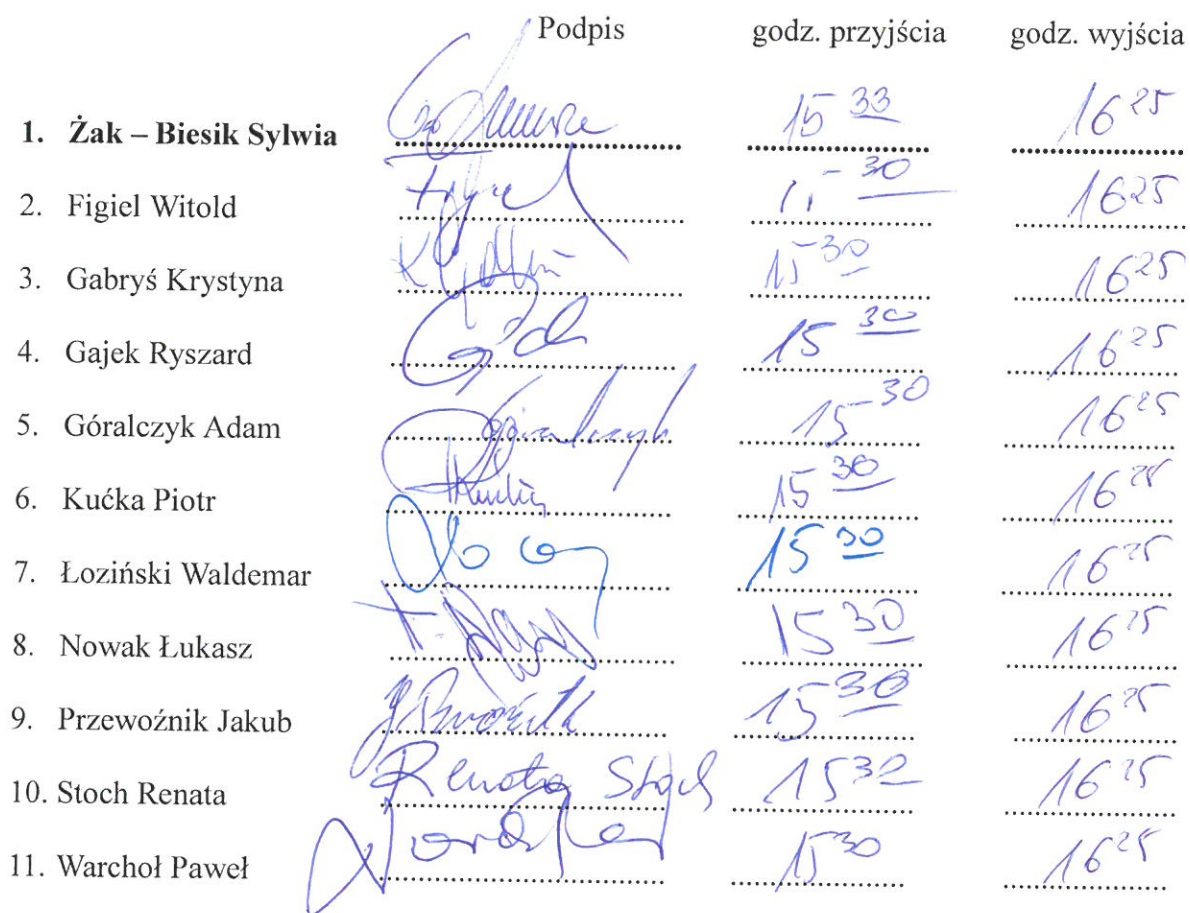 Podpis godz. przyjścia godz. wyjścia
1. Żak – Biesik Sylwia 15 33 16 25
2. Figiel Witold Figiel 30 16 25
3. Gabryś Krystyna 15 30 16 25
4. Gajek Ryszard 15 30 16 25
5. Góralczyk Adam Góralczyk 15 30 16 25
6. Kućka Piotr 15 30 16 25
7. Łoziński Waldemar 15 30 16 25
8. Nowak Łukasz 15 30 16 25
9. Przewoźnik Jakub 15 30 16 25
10. Stoch Renata Renata Stoch 15 30 16 25
11. Warchoł Paweł 15 30 16 25